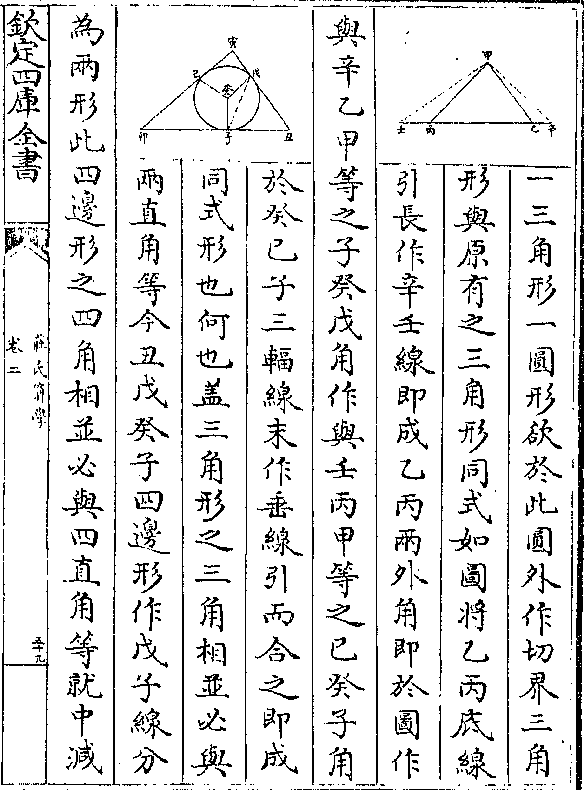 甲
壬 丙 乙 辛
一三角形一圓形欲於此圓外作切界三角
形與原有之三角形同式如圖將乙丙底線
引長作辛壬線即成乙丙兩外角即於圖作
與辛乙甲等之子癸戊角作與壬丙甲等之已癸子角
寅
已 戊
癸
卯 子 丑
於癸已子三輻線末作垂線引而合之即成
同式形也何也蓋三角形之三角相並必與
兩直角等今丑戊癸子四邊形作戊子線分
為兩形此四邊形之四角相並必與四直角等就中減
欽定四庫全書
莊氏算學
卷二
五十九